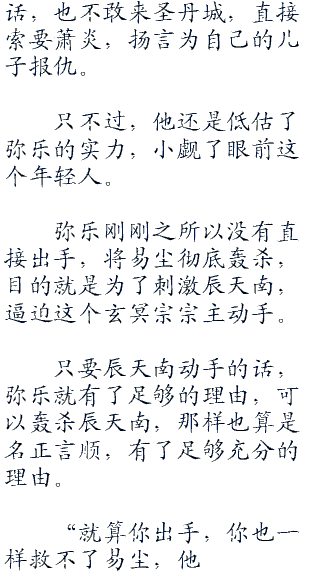 话，也不敢来圣丹城，直接
索要萧炎，扬言为自己的儿
子报仇。
只不过，他还是低估了
弥乐的实力，小觑了眼前这
个年轻人。
弥乐刚刚之所以没有直
接出手，将易尘彻底轰杀，
目的就是为了刺激辰天南，
逼迫这个玄冥宗宗主动手。
只要辰天南动手的话，
弥乐就有了足够的理由，可
以轰杀辰天南，那样也算是
名正言顺，有了足够充分的
理由。
“就算你出手，你也一
样救不了易尘，他